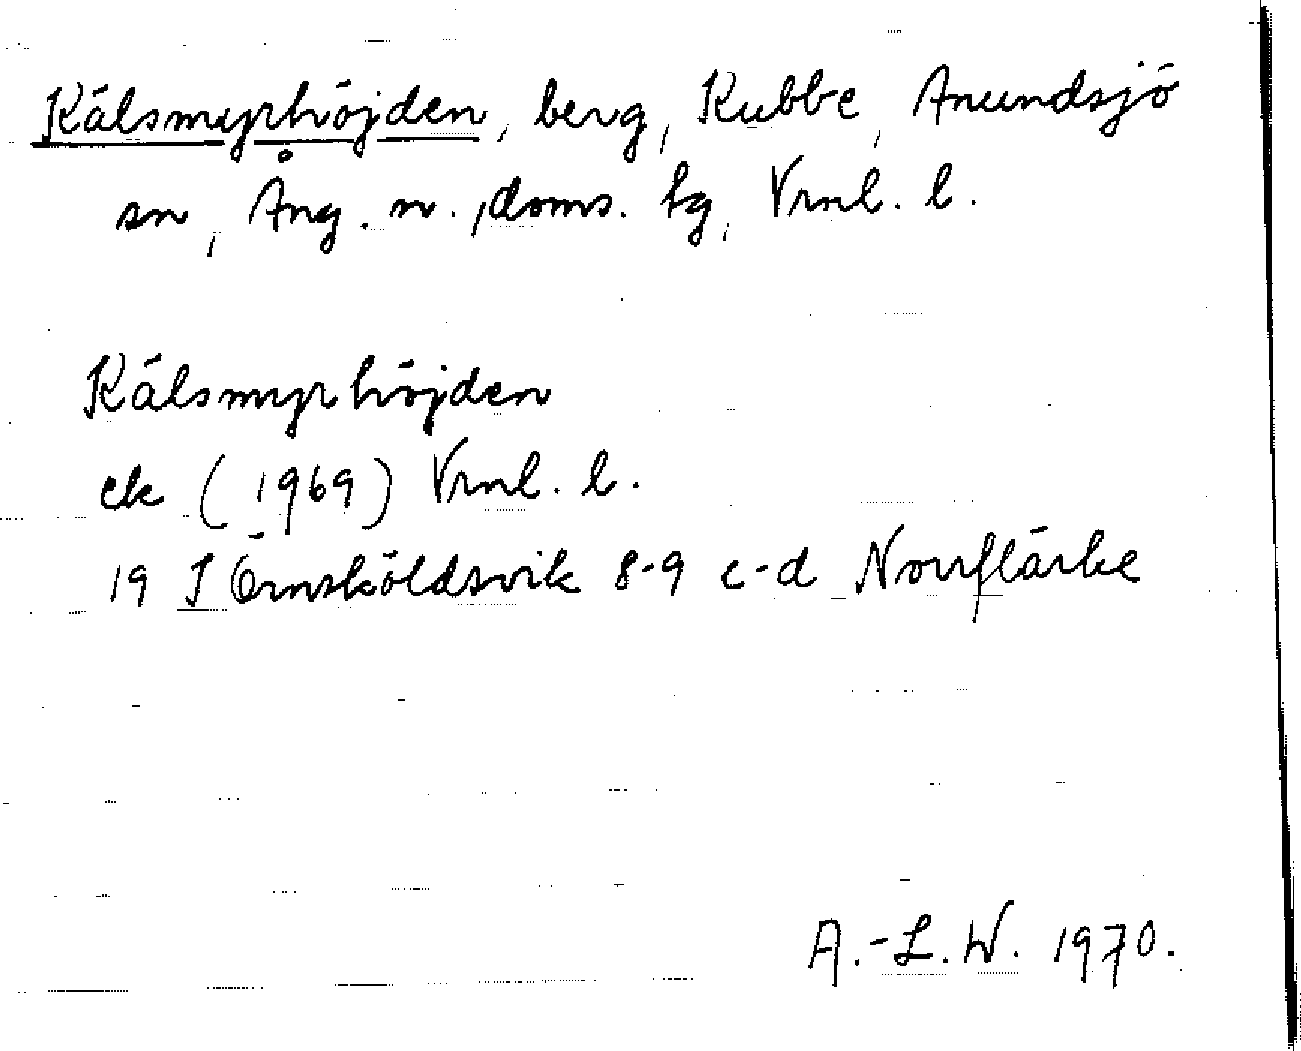 Kälsmyrhöjden, berg, Kubbe, Anundsjö
sn, Ång. n., doms. lg, Vrnl. l.
Kälsmyrhöjden
ek (1969) Vrnl. l.
19 J Örnsköldsvik 8-9 c-d Norrflärke
A.-L. W. 1970.